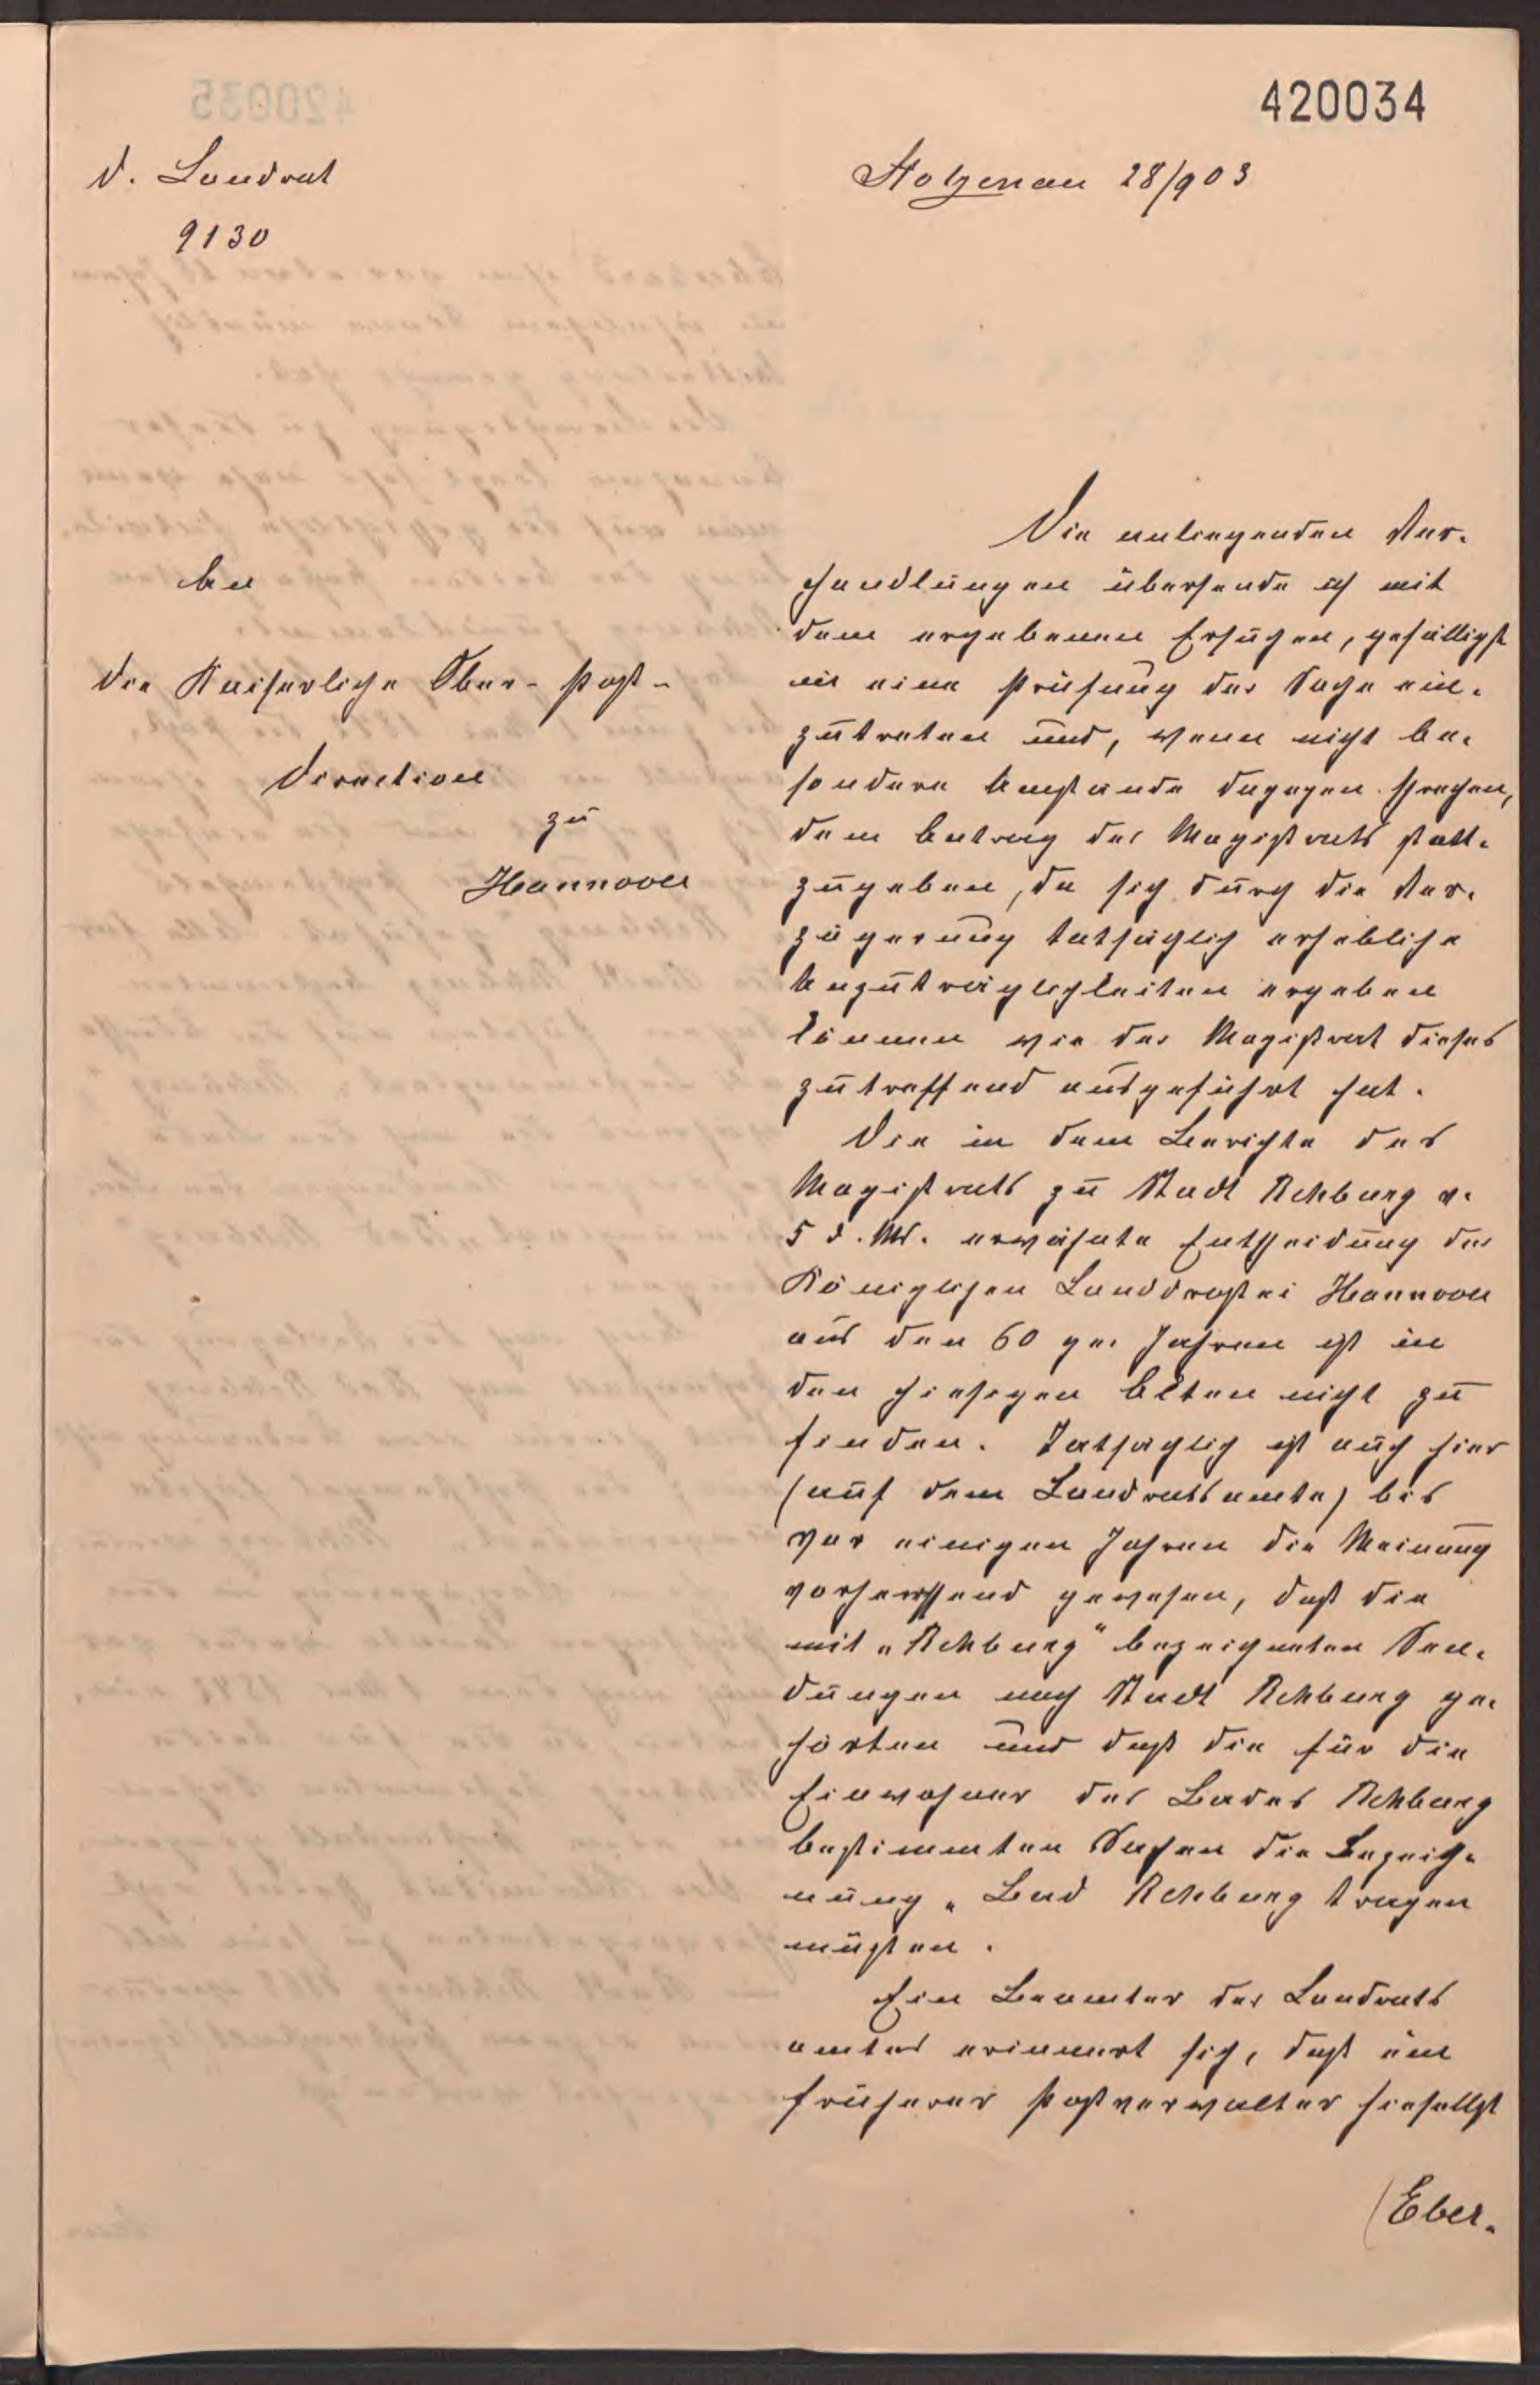 420034
D. Landrat
9130
Stolzenau 28/9 03
An
die Kaiserliche Ober-Post-
direction
zu
Hannover
Die anliegenden Ver-
handlungen übersende ich mit
dem ergebenen Ersuchen, gefälligst
in eine Prüfung der Sache ein-
zutreten und, wenn nicht be-
sondere Umstände dagegen sprechen,
dem Antrag des Magistrats statt-
zugeben, da sich durch die Ver-
zögerung tatsächlich erhebliche
Unzuträglichkeiten ergeben
können wie der Magistrat dieses
zutreffend ausgeführt hat.
Die in dem Berichte des
Magistrats zu Stadt Rehburg v.
5 d. Mt. erwähnte Entscheidung der
Königlichen Landdrostei Hannover
aus den 60 ger Jahren ist in
den hiesigen Akten nicht zu
finden. Tatsächlich ist auch hier
(auf dem Landratsamte) bis
vor einigen Jahren die Meinung
vorherrschend gewesen, daß die
mit „Rehburg" bezeichneten Sen-
dungen nach Stadt Rehburg ge-
hörten und daß die für die
Einwohner des Bades Rehburg
bestimmten Sachen die Bezeich-
nung „Bad Rehburg tragen
müßten.
Ein Beamter des Landrats
amtes erinnert sich, daß ein
früherer Postverwalter hieselbst
(Eber-